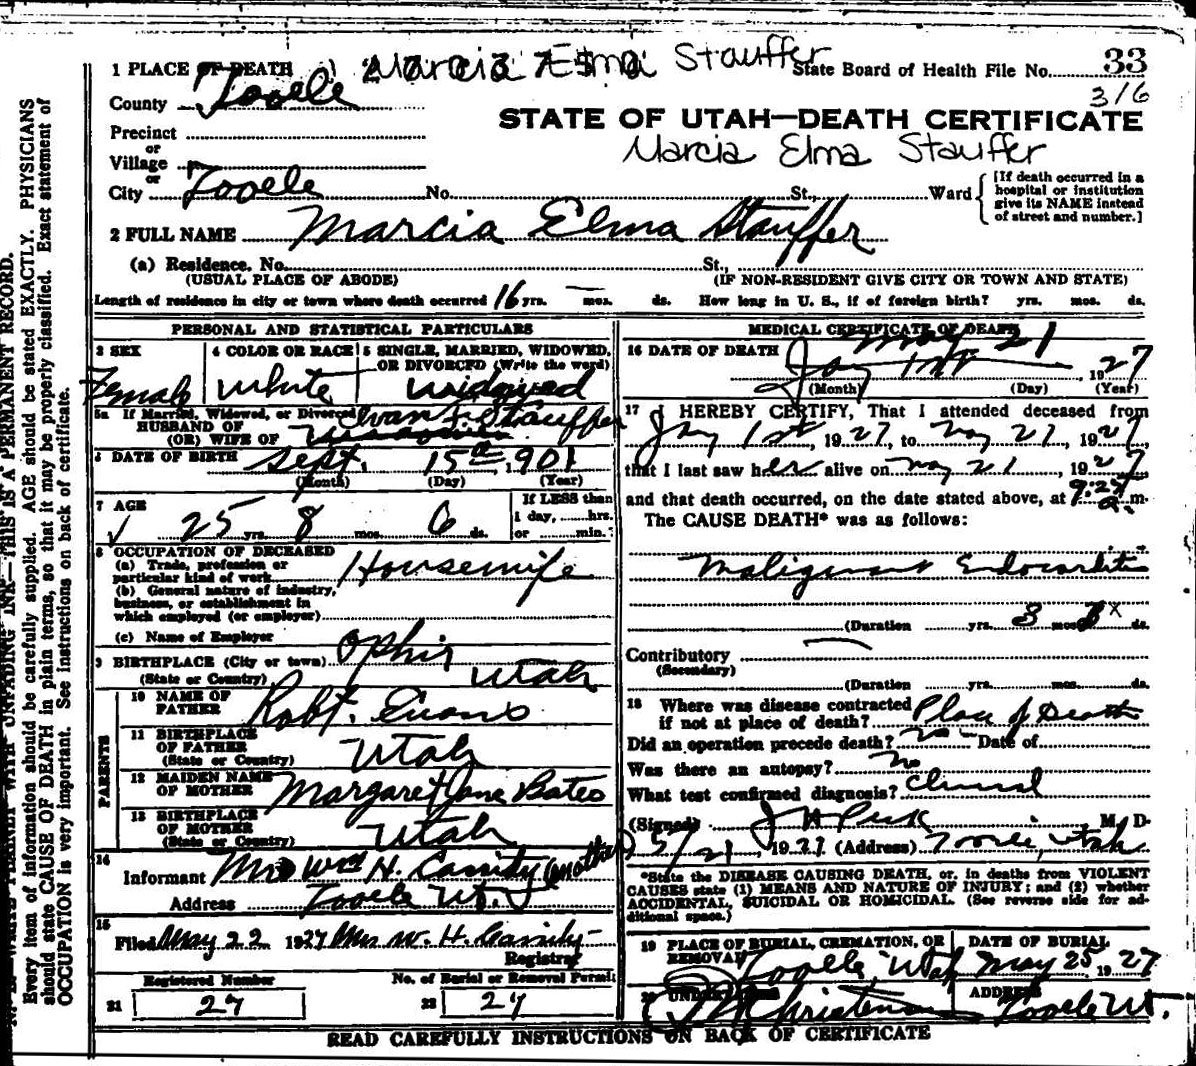 Marcia Elma Stauffer
1 PLACE OF DEATH
State Board of Health File No. 33
316
County Tooele
STATE OF UTAH—DEATH CERTIFICATE
Precinct
or
Marcia Elma Stauffer
Village
or
City Tooele No. St., Ward
[If death occurred in a
hospital or institution
give its NAME instead
of street and number.]
2 FULL NAME Marcia Elma Stauffer
(a) Residence. No. St.,
(USUAL PLACE OF ABODE) (IF NON-RESIDENT GIVE CITY OR TOWN AND STATE)
Length of residence in city or town where death occurred 16 yrs. — mos. ds. How long in U. S., if of foreign birth? yrs. mos. ds.
PERSONAL AND STATISTICAL PARTICULARS
3 SEX
Female
4 COLOR OR RACE
White
5 SINGLE, MARRIED, WIDOWED,
OR DIVORCED (Write the word)
Widowed
5a If Married, Widowed, or Divorced
HUSBAND OF
(OR) WIFE OF
Ivan F. Stauffer
6 DATE OF BIRTH Sept. 15th 1901
(Month) (Day) (Year)
7 AGE
25 yrs. 8 mos. 6 ds.
If LESS than
1 day, hrs.
or min.
8 OCCUPATION OF DECEASED
(a) Trade, profession or
particular kind of work Housewife
(b) General nature of industry,
business, or establishment in
which employed (or employer)
(c) Name of Employer
9 BIRTHPLACE (City or town) Ophir
(State or Country) Utah
PARENTS
10 NAME OF
FATHER Robt. Evans
11 BIRTHPLACE
OF FATHER
(State or Country) Utah
12 MAIDEN NAME
OF MOTHER Margaret Jane Bates
13 BIRTHPLACE
OF MOTHER
(State or Country) Utah
14
Informant Mrs Wm H. Cassity (mother)
Address Tooele Ut.
15
Filed May 22 1927 Mrs W. H. Cassity
Registrar
Registered Number
21 27
No. of Burial or Removal Permit
22 27
MEDICAL CERTIFICATE OF DEATH
May 21
16 DATE OF DEATH
Jay 1st 1927
(Month) (Day) (Year)
17 I HEREBY CERTIFY, That I attended deceased from
Jay 1st, 1927, to May 21, 1927,
that I last saw her alive on May 21, 1927
and that death occurred, on the date stated above, at a. m.
The CAUSE DEATH* was as follows:
Malignant Endocarditis
(Duration yrs. 3 mos. ds.
Contributory
(Secondary)
(Duration yrs. mos. ds.
18 Where was disease contracted
if not at place of death? Place of Death
Did an operation precede death? no Date of
Was there an autopsy? no
What test confirmed diagnosis? Clinical
(Signed) J H Peck M. D.
5/21, 1927 (Address) Tooele, Utah
*State the DISEASE CAUSING DEATH, or, in deaths from VIOLENT
CAUSES state (1) MEANS AND NATURE OF INJURY; and (2) whether
ACCIDENTAL, SUICIDAL OR HOMICIDAL. (See reverse side for ad-
ditional space.)
19 PLACE OF BURIAL, CREMATION, OR
REMOVAL
Tooele, Utah
DATE OF BURIAL
May 25 1927
20 UNDERTAKER
Christensen
ADDRESS
Tooele Ut.
READ CAREFULLY INSTRUCTIONS ON BACK OF CERTIFICATE
Every item of information should be carefully supplied. AGE should be stated EXACTLY. PHYSICIANS
should state CAUSE OF DEATH in plain terms, so that it may be properly classified. Exact statement of
OCCUPATION is very important. See instructions on back of certificate.